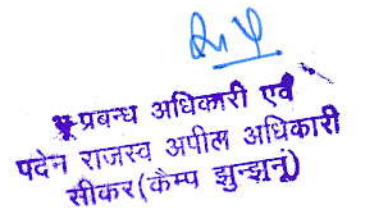 भू प्रबन्ध अधिकारी एवं
पदेन राजस्व अपील अधिकारी
सीकर(कैम्प झुन्झुनू)